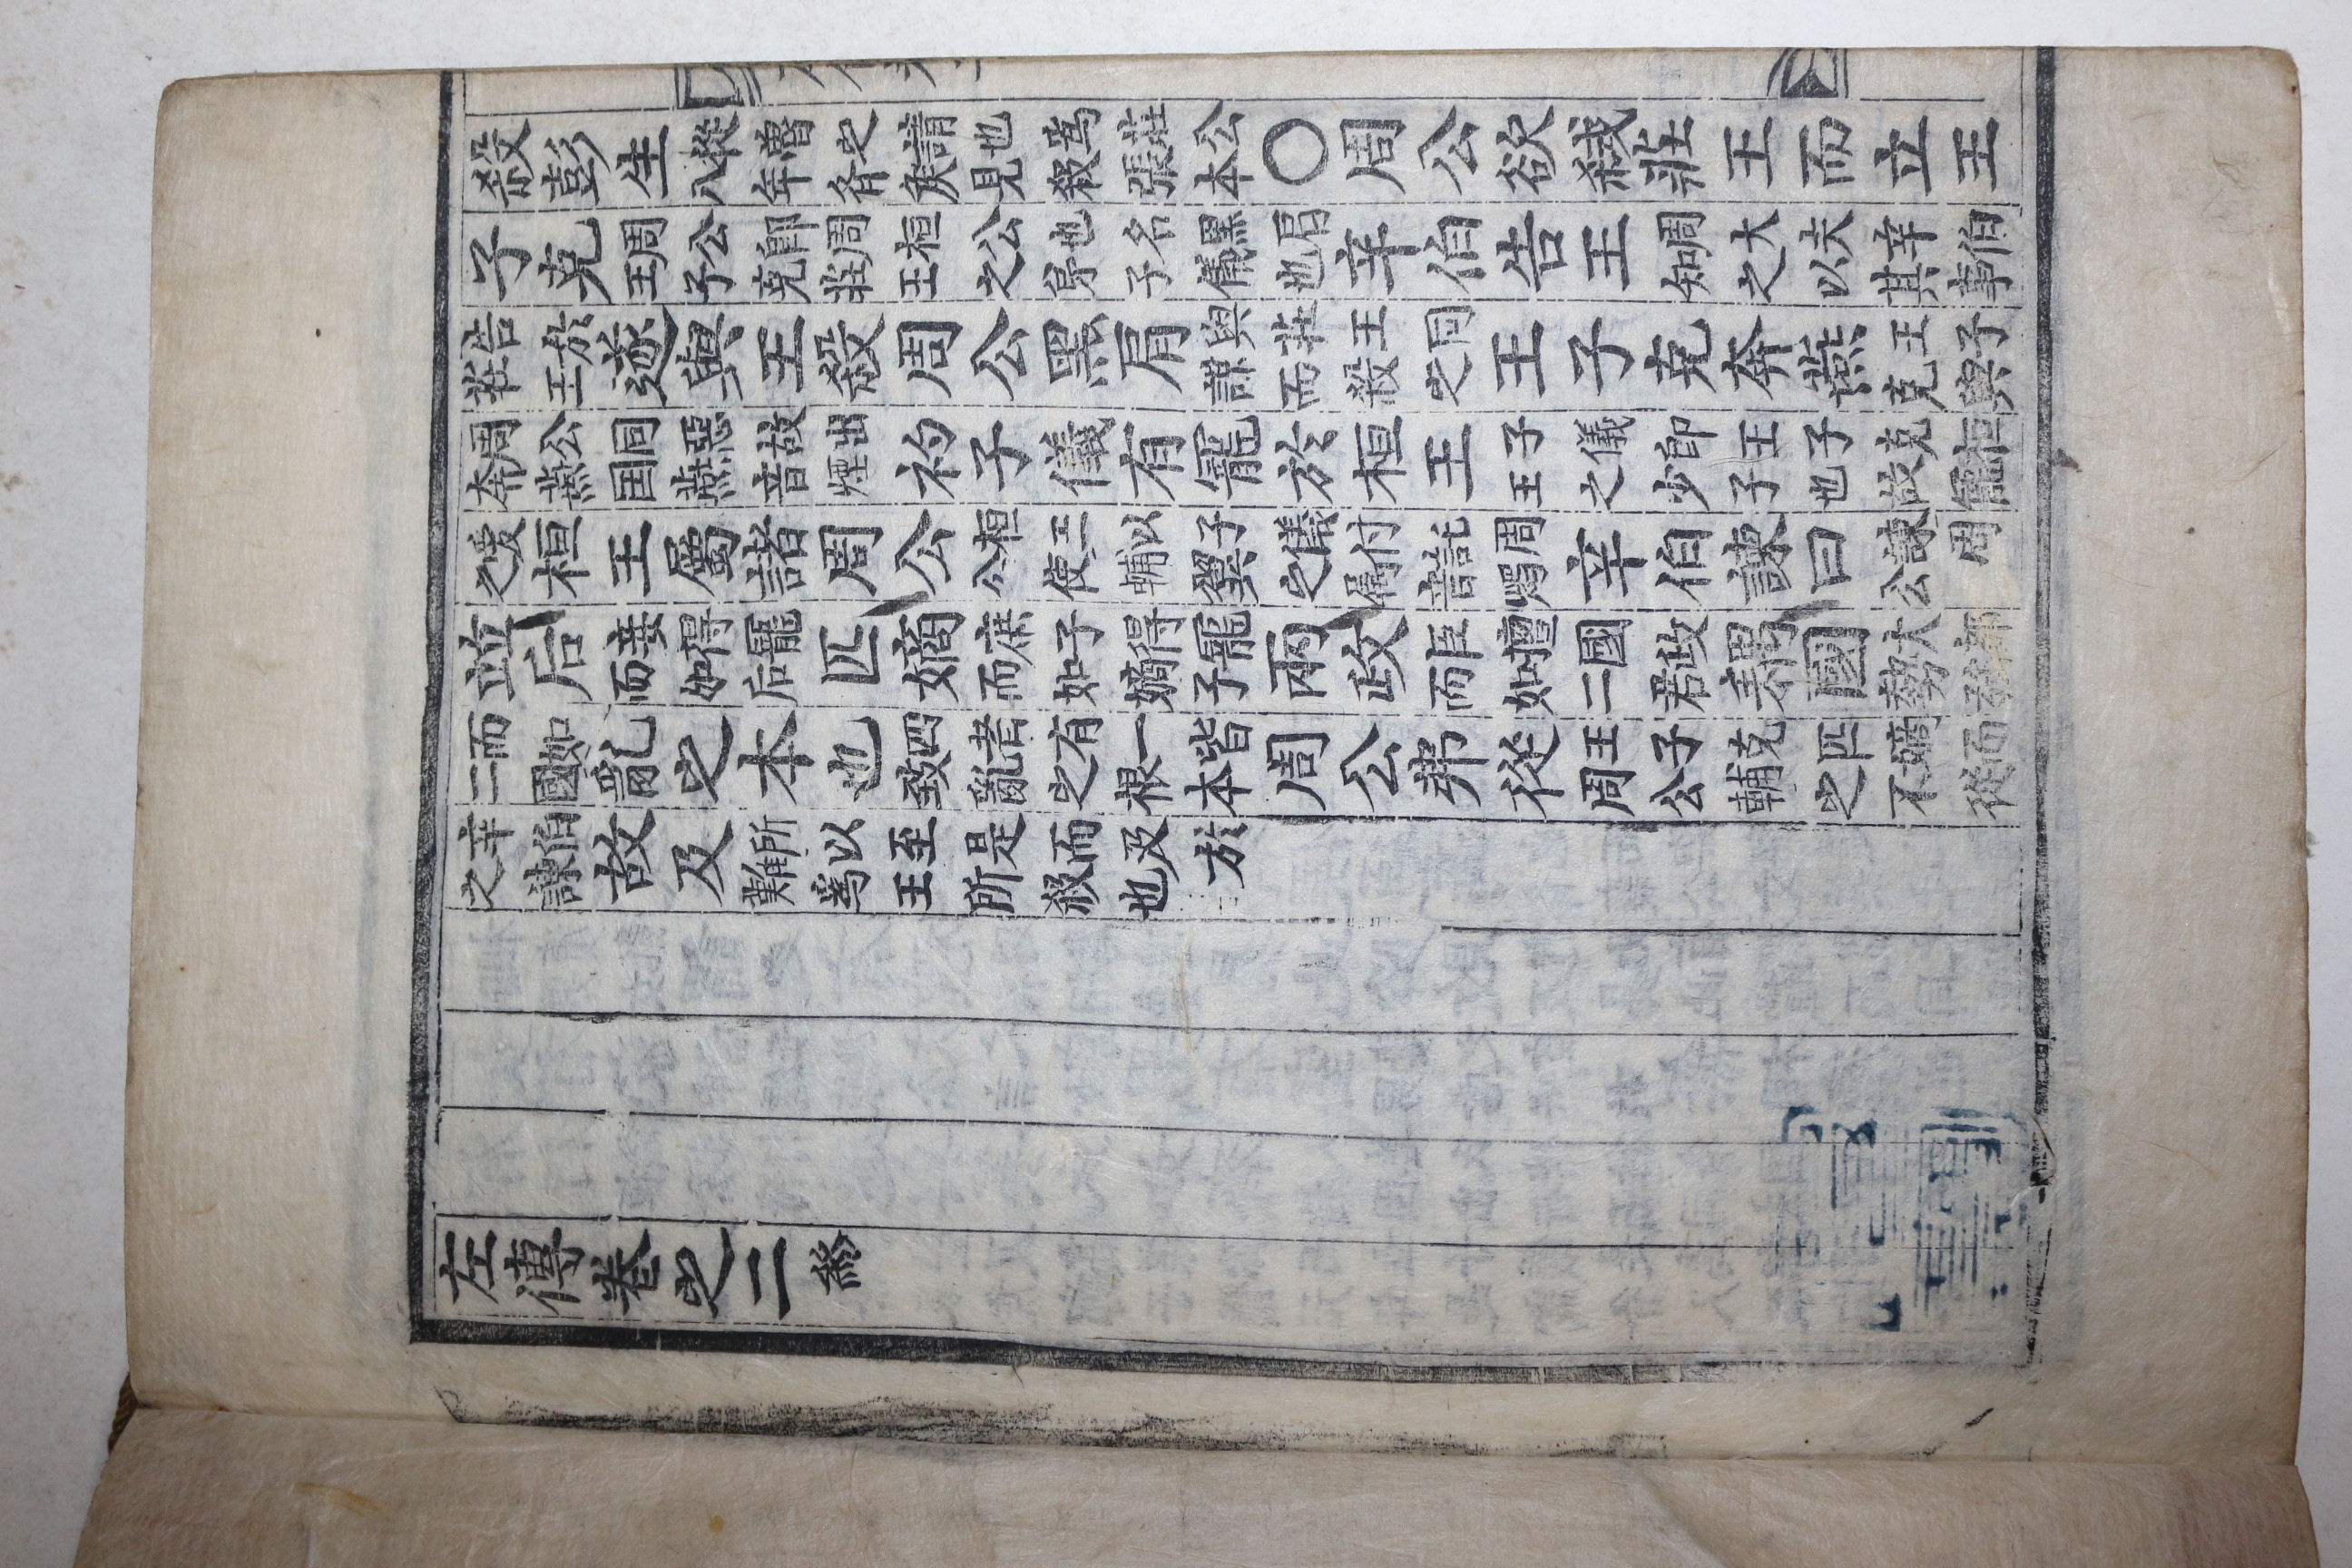 殺彭生從魯之請也爲莊公八年齊矦見殺張本○周公欲弑莊王而立王
子克周公卽周桓公也名黑肩王子克莊王之弟子儀也辛伯告王周大夫辛伯知之以其事
告於莊王遂與王殺周公黑肩與莊王同謀而殺之王子克奔燕王子克與
周公同惡故出奔燕国燕音煙初子儀有寵於桓王子儀卽王子克桓王之少子也故寵
愛之桓王屬諸周公桓王以子儀付託周公使輔翼之屬音燭辛伯諫曰諫周公
竝后妾得寵而如后匹嫡庶子得寵而如嫡子兩政臣擅國政而如二君耦國大都勢強
而如二國亂之本也四者有一皆致亂之根本周公弗從王子克匹嫡而周公輔之不從
辛伯之諫故及所以至是而及於難爲王所殺也
左傳卷之二終